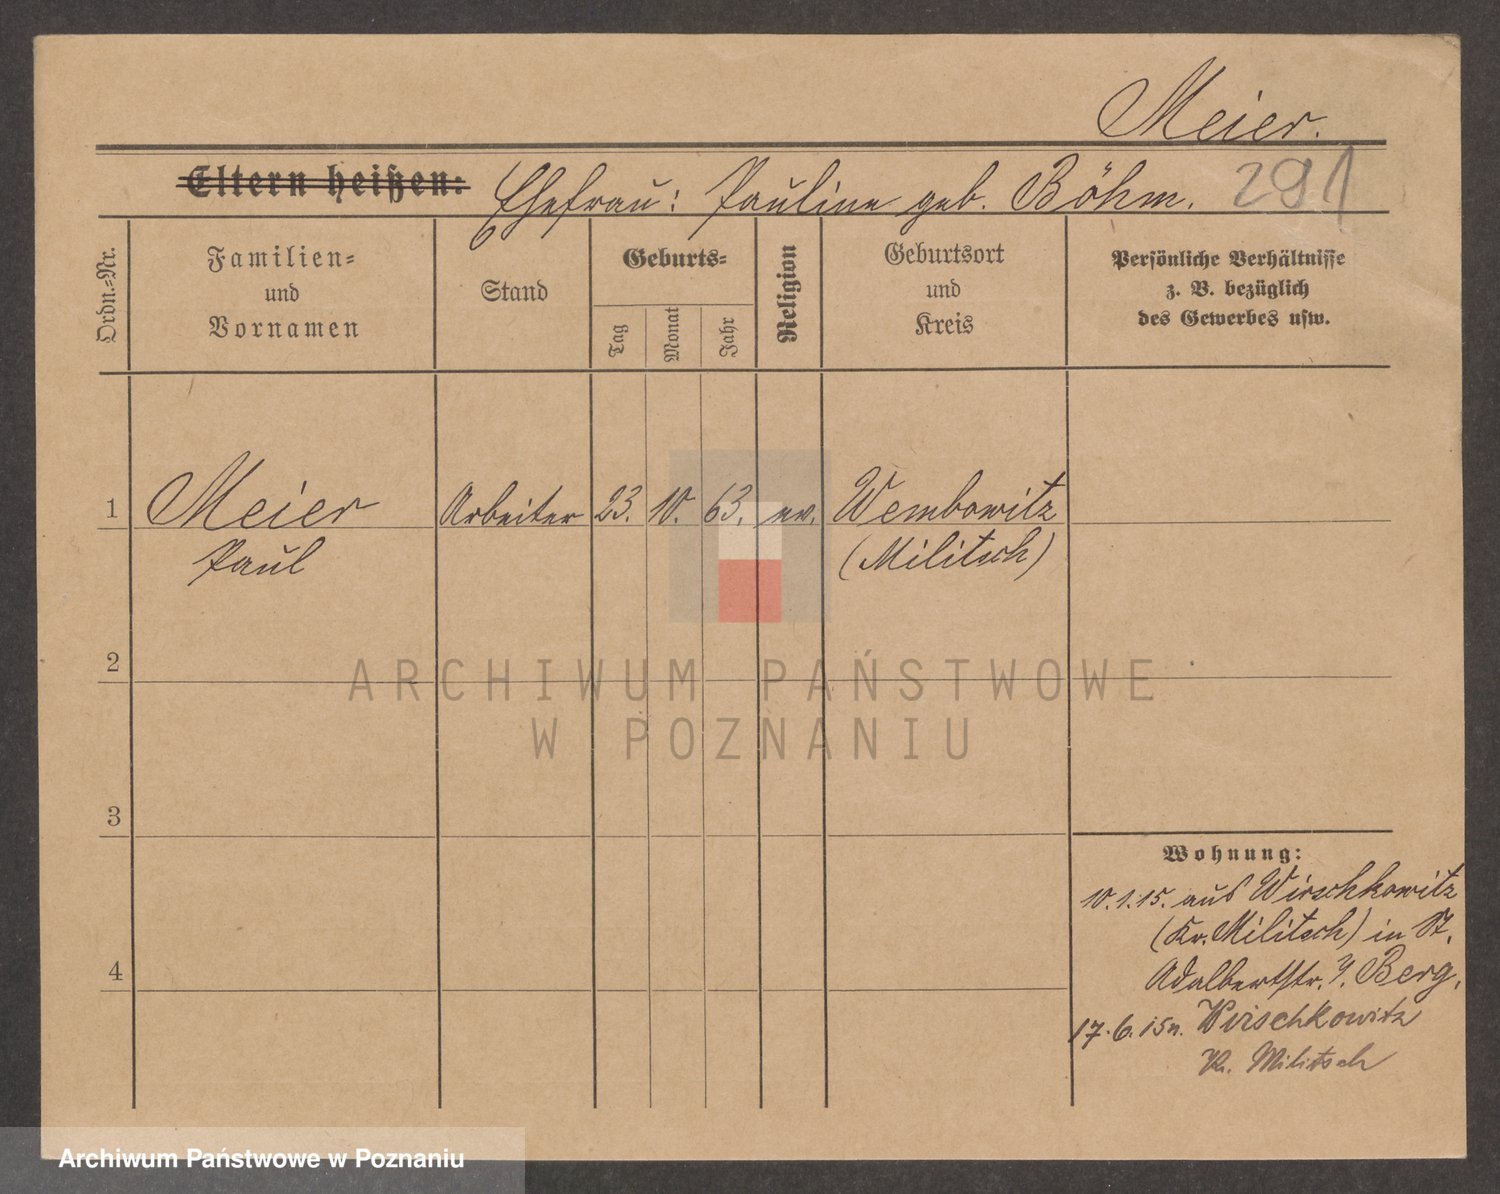 Meier.
Eltern heißen: Ehefrau: Pauline geb. Böhm. 291
Ordn.-Nr.
Familien-
und
Vornamen
Stand
Geburts-
Tag
Monat
Jahr
Religion
Geburtsort
und
Kreis
Persönliche Verhältnisse
z. B. bezüglich
des Gewerbes usw.
1 Meier Arbeiter 23. 10. 63. ev. Wembowitz
Paul (Militsch)
2
ARCHIWUM PAŃSTWOWE
W POZNANIU
3
Wohnung:
10.1.15. aus Wirschkowitz
(Kr. Militsch) in St.
4
Adalbertstr. Berg.
17.6.15 n. Wirschkowitz
Kr. Militsch
Archiwum Państwowe w Poznaniu